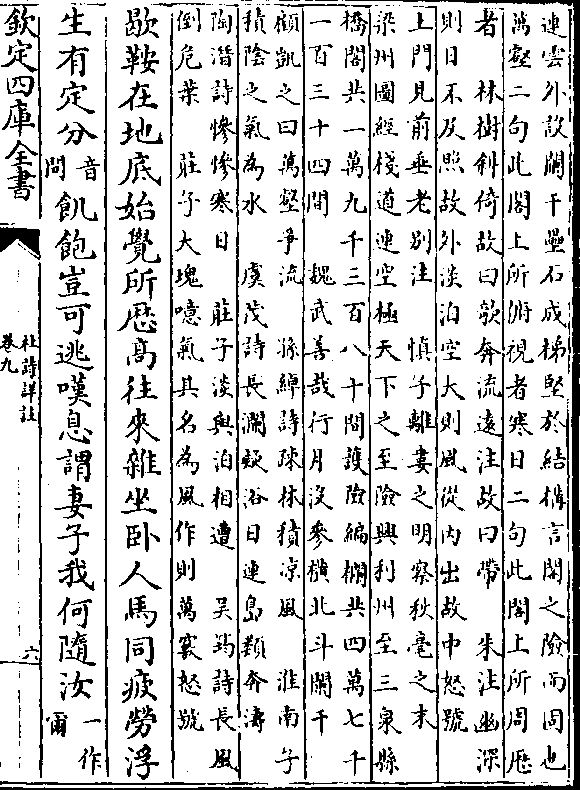 連雲外設闌干疊石成梯堅於結構言閣之險而固也
萬壑二句此閣上所俯視者寒日二句此閣上所周歷
者　林樹斜倚故曰欹奔流遠注故曰帶　朱注幽深
則日不反照故外淡泊空大則風從內出故中怒號
上門見前垂老別注　慎子離婁之明察秋毫之末
梁州圖經棧道連空極天下之至險興利州至三泉縣
橋閣共一萬九千三百八十間護險編欄共四萬七千
一百三十四間　魏武善哉行月沒參橫北斗闌干
顧凱之曰萬壑爭流　孫綽詩疎林積涼風　淮南子
積陰之氣為水　虞茂詩長瀾疑浴日連島類奔濤
陶潛詩慘慘寒日　莊子淡與泊相遭　吳筠詩長風
倒危葉　莊子大塊噫氣其名為風作則萬竅怒號
歇鞍在地底始覺所歷高往來雜坐卧人馬同疲勞浮
生有定分音問飢飽豈可逃嘆息謂妻子我何隨汝一作爾
欽定四庫全書
杜詩詳註
卷九
六